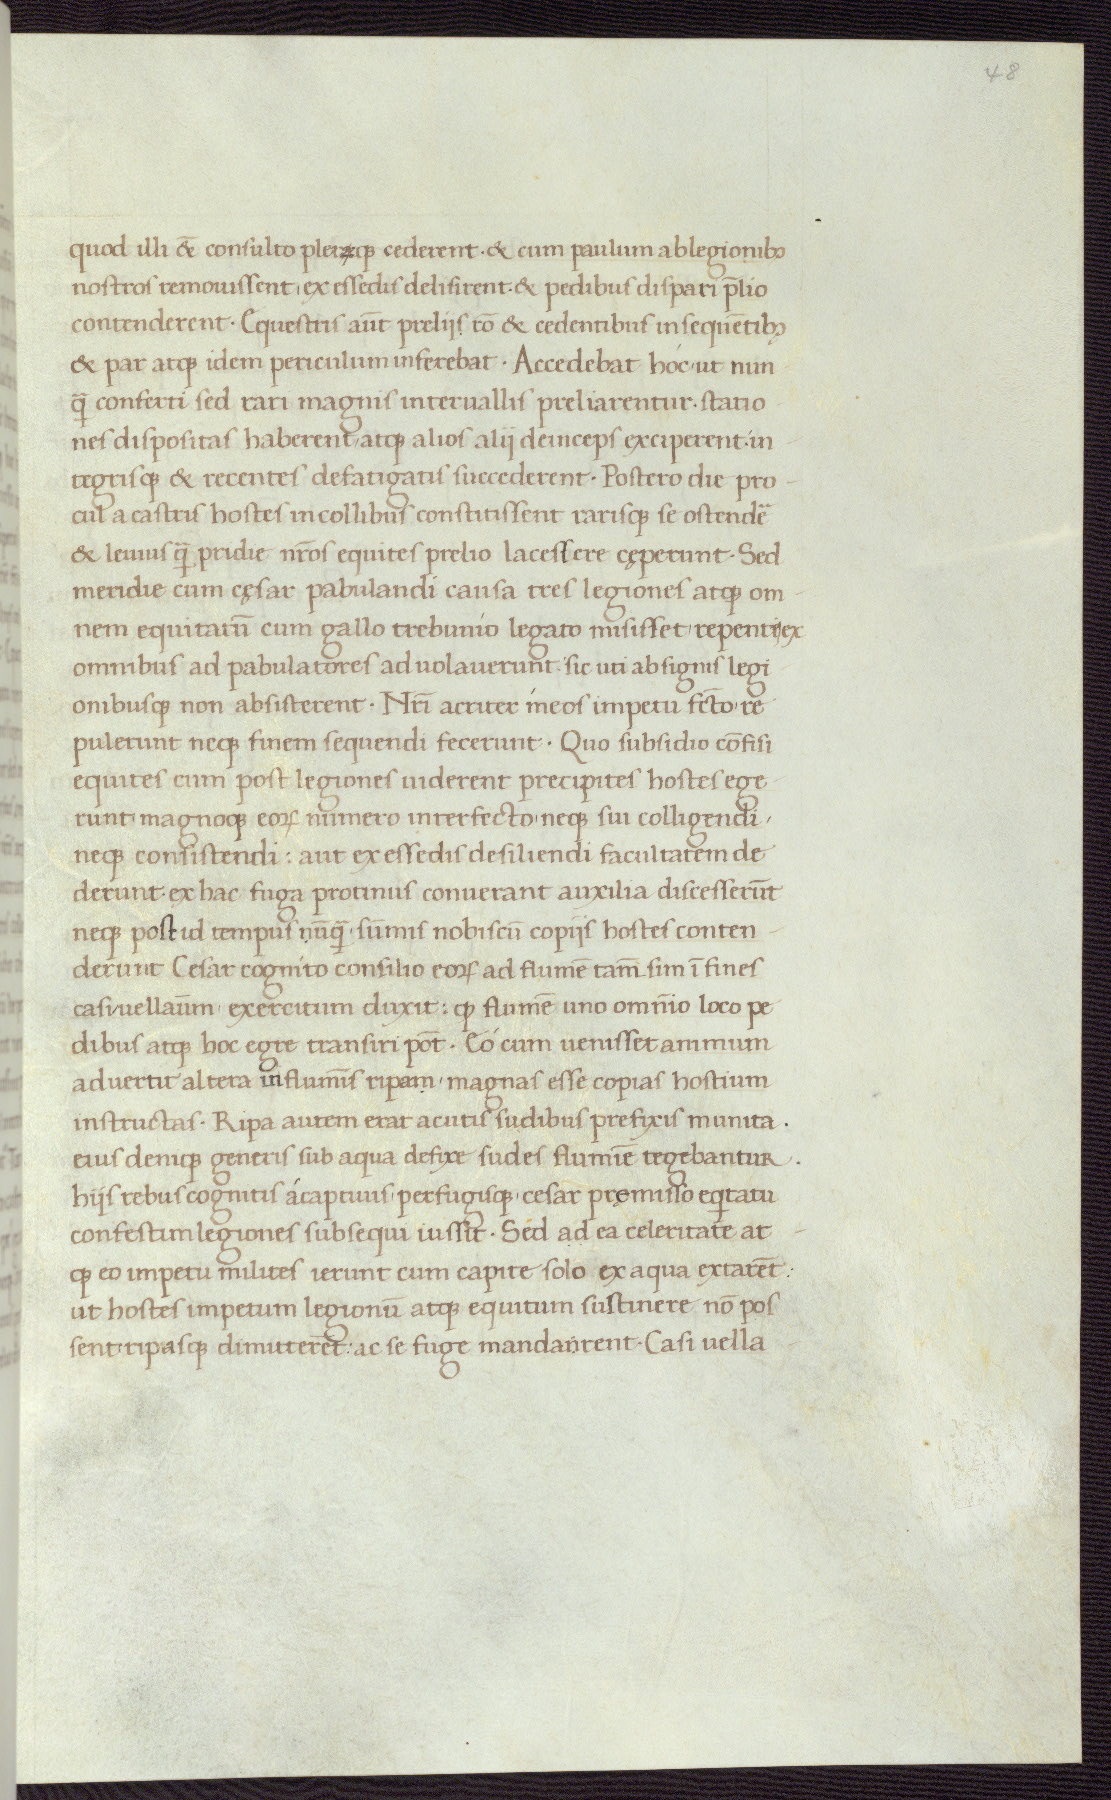 48
quod illi & consulto plerūq; cederent · & cum paulum ab legionibȝ
nostros remouissent, ex essedis delisirent · & pedibus dispari p̄lio
contenderent · Equestris aūt preliis rō & cedentibus insequētibȝ
& par atq; idem periculum inferebat · Accedebat hóc, ut nun
q̄ conferti sed rari magnis interuallis preliarentur · statio
nes dispositas haberent, atq; alios alij deinceps exciperent · in
tegrisq; & recentes defatigatis succederent · Postero die pro
cul a castris hostes in collibus constitissent rarisq; se ostendē
& leuius q̄ pridie nr̄os equites prelio lacessere cęperunt · Sed
meridie cum cęsar pabulandi causa tres legiones atq; om
nem equitatū cum gallo trebunio legato misisset, repente ex
omnibus ad pabulatores aduolauerunt · sic uti ab signis legi
onibusq; non absisterent · Nr̄i acriter in eos impetu fc̄to, re
pulerunt neq; finem sequendi fecerunt · Quo subsidio cōfisi
equites cum post legiones uiderent precipites hostes ege
runt, magnoq; eoꝝ numero interfecto, neq; sui colligendi,
neq; consistendi : aut ex essedis desiliendi facultatem de
derunt · ex hac fuga protinus conuerant auxilia discesserūt
neq; post id tempus nūq̄, sūmis nobiscū copiis hostes conten
derunt Cesar cognito consilio eoꝝ ad flumē tam̄sim ī fines
casiuellaūm exercitum duxit : q; flumē uno omnīo loco pe
dibus atq; hoc egre transiri pōt · Eó cum uenisset animum
aduertit altera in flumīs ripam, magnas esse copias hostium
instructas · Ripa autem erat acutis sudibus prefixis munita ·
eius demq; generis sub aqua defixe sudes flumīe tegebantur ·
hijs rebus cognitis á captiuis, perfugisq; cesar pręmisso eq̇tatu
confestim legiones subsequi iussit · Sed ad ea celeritate at
q; eo impetu milites ierunt cum capite solo ex aqua extarēt :
ut hostes impetum legionū atq; equitum sustinere nō pos
sent, ripasq; dimitterēt : ac se fuge mandarent · Casi uella